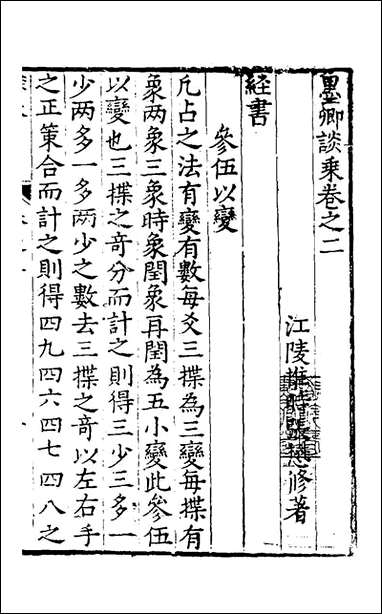 墨卿談乗卷之二
江陵　張懋修著
経書
參伍以變
凢占之法有變有數每爻三揲為三變每揲有
象两象三象時象閏象再閏為五小變此參伍
以變也三揲之竒分而計之則得三少三多一
少两多一多两少之數去三揲之竒以左右手
之正策合而計之則得四九四六四七四八之